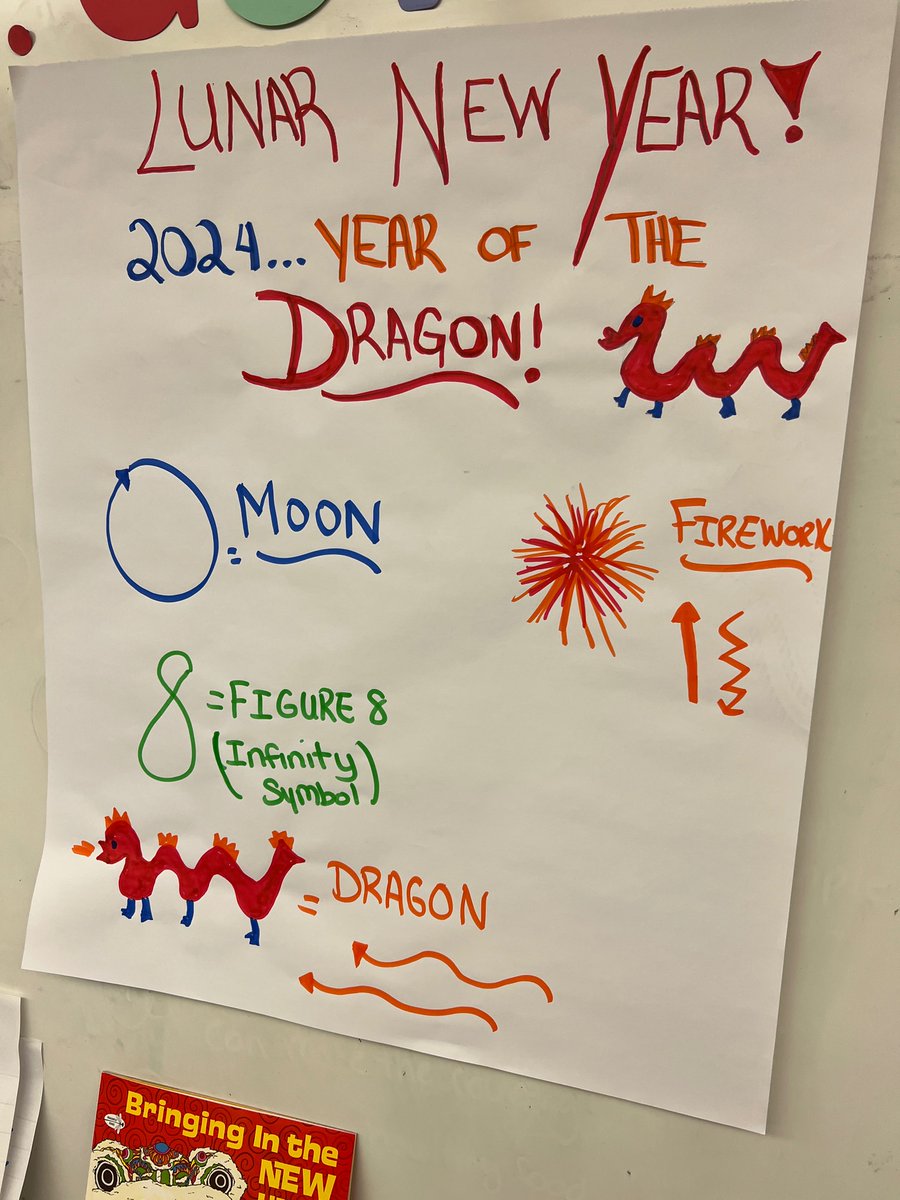 LUNAR NEW YEAR!
2024... YEAR OF THE
DRAGON!
= MOON
FIREWORK
8 = FIGURE 8
(Infinity
Symbol)
= DRAGON
Bringing In the
NEW